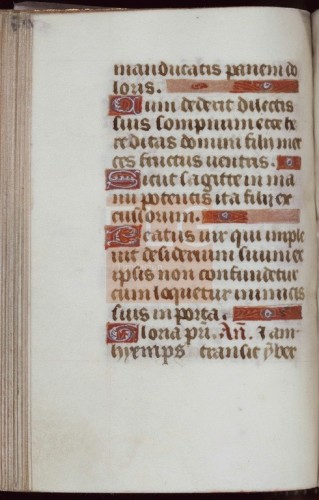 manducatis panem do
loris.
Cum dederit dilectis
suis sompnum ecce he
reditas domini filii mer
ces fructus ventris.
Sicut sagitte in ma
nu potentis ita filii ex
cussorum.
Beatus vir qui imple
uit desiderium suum ex
ipsis non confundetur
cum loquetur inimicis
suis in porta.
Gloria pri. An. Iam
hyemps transiit ymber